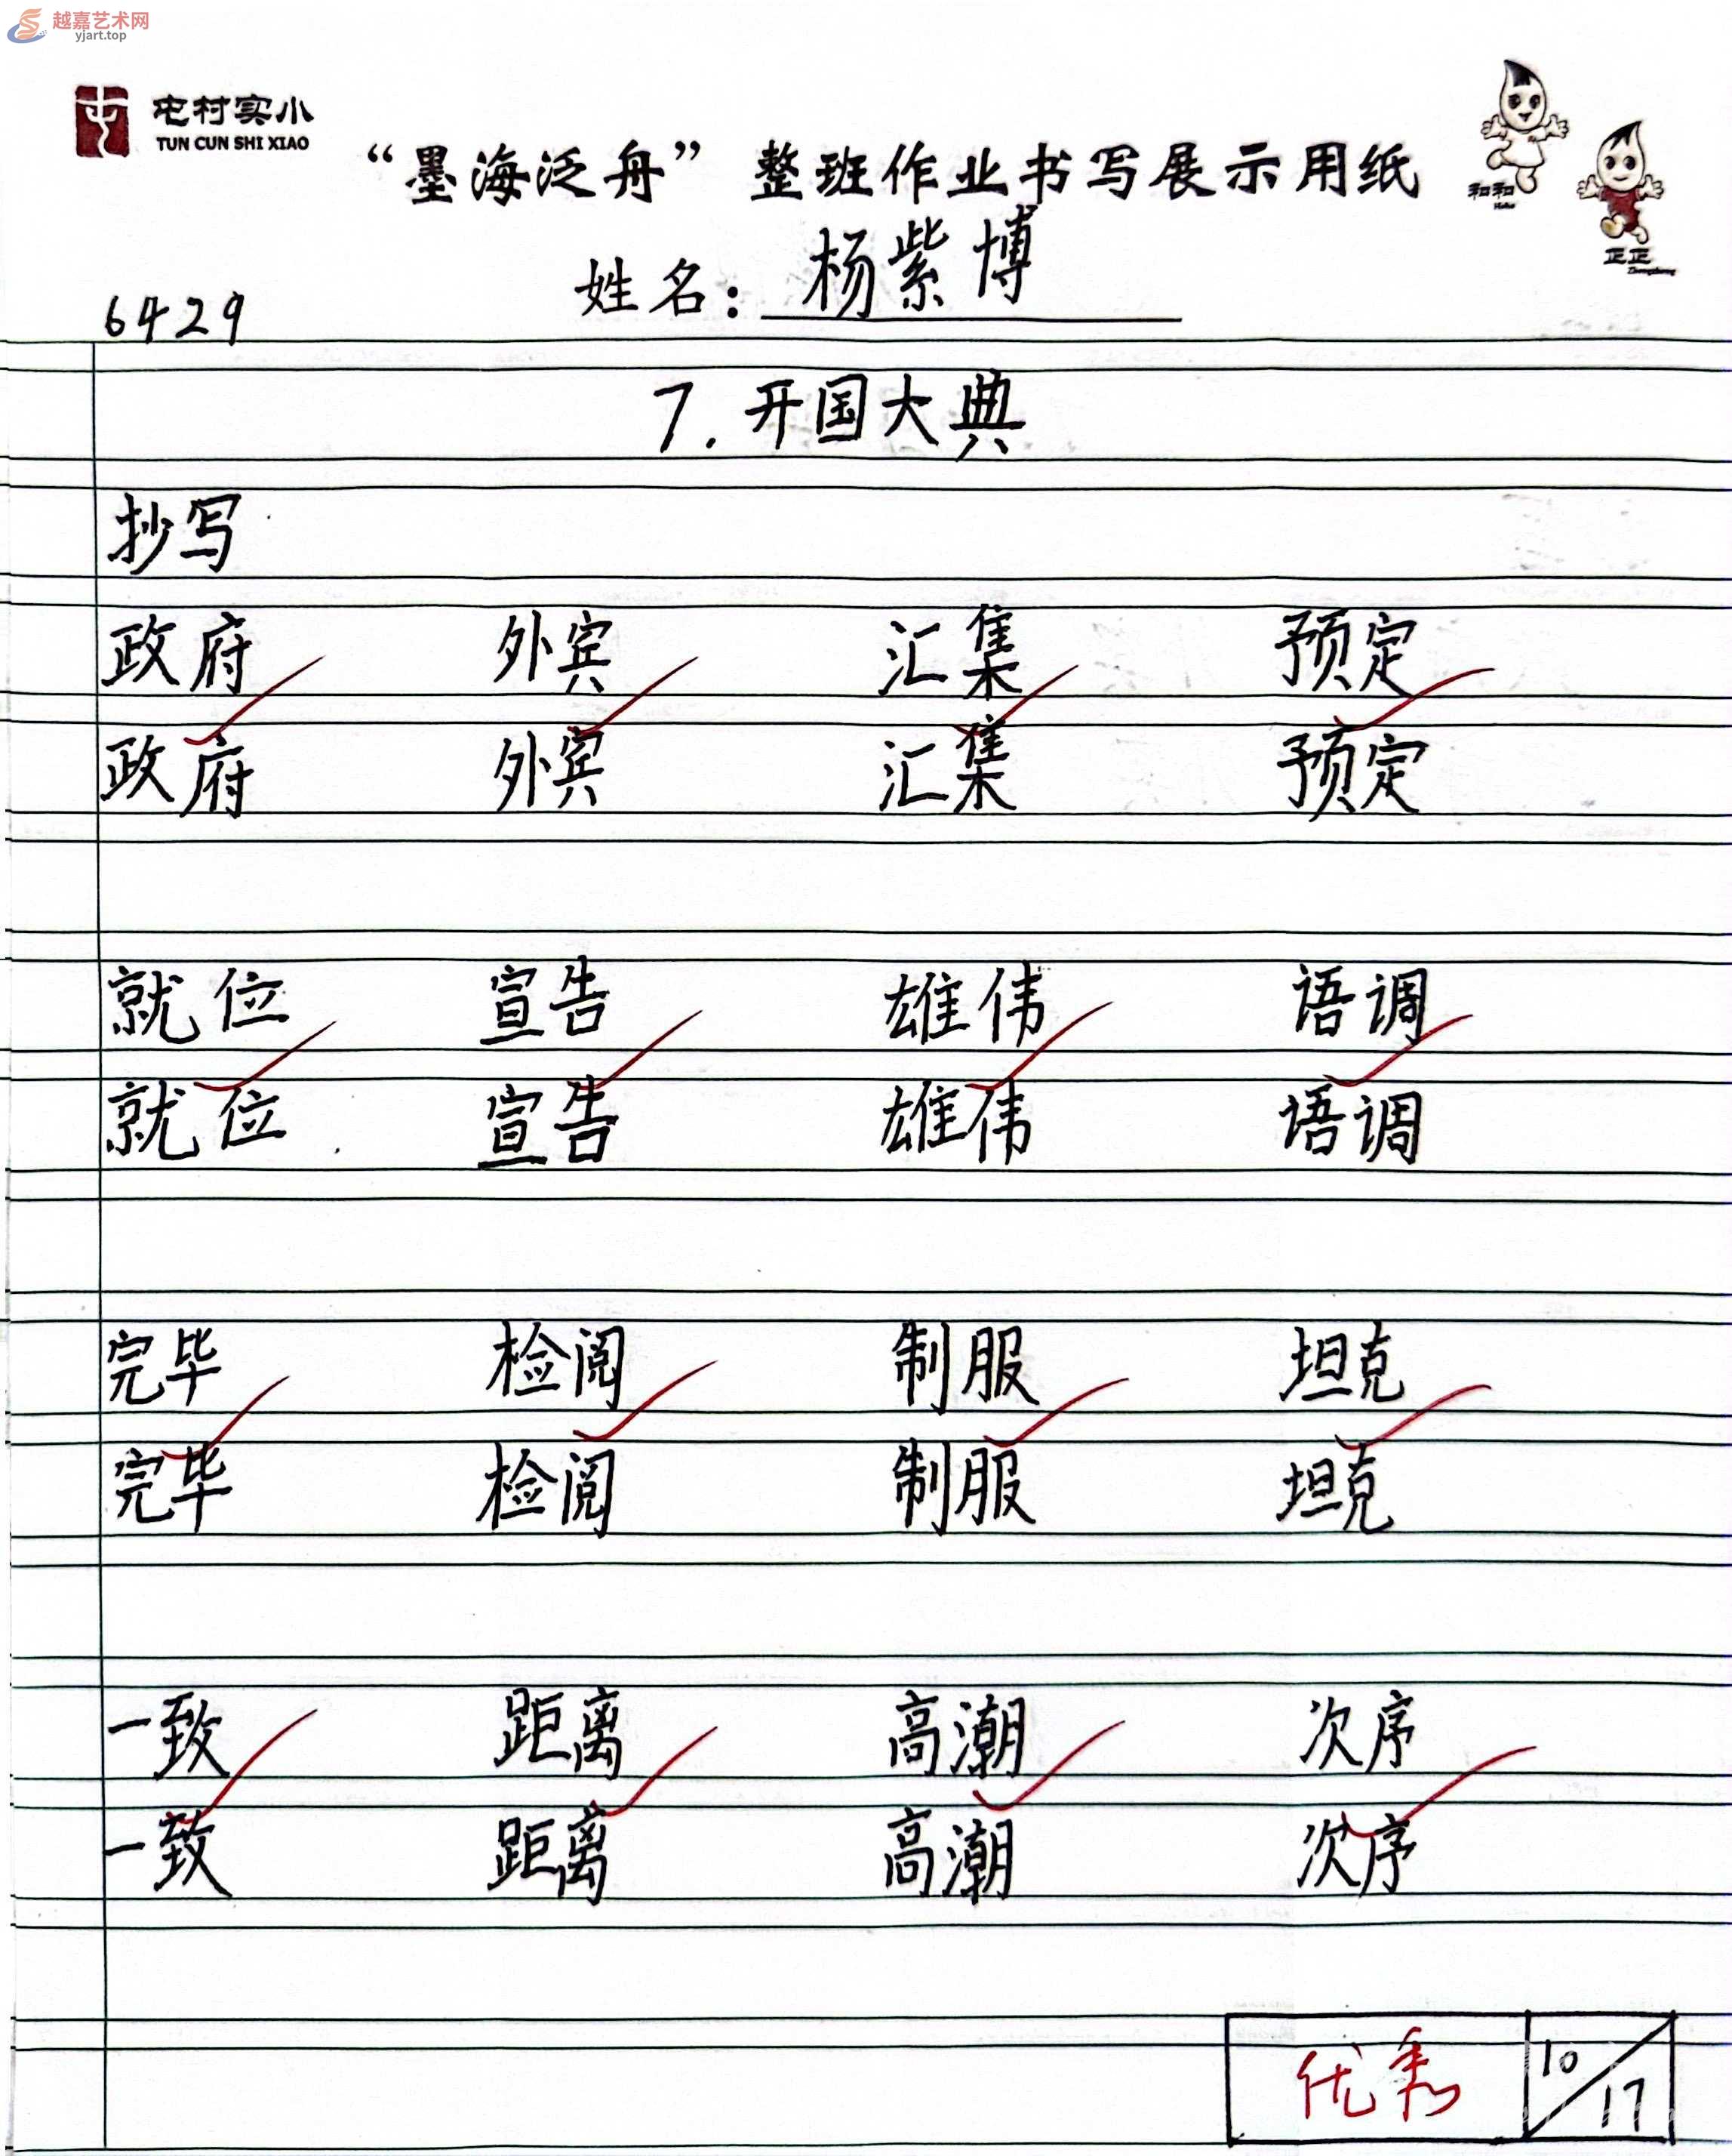 越嘉艺术网
yjart.top
屯村实小
TUN CUN SHI XIAO
“墨海泛舟”整班作业书写展示用纸
和和
正正
姓名：杨紫博
6429
7.开国大典
抄写
政府 外宾 汇集 预定
政府 外宾 汇集 预定
就位 宣告 雄伟 语调
就位 宣告 雄伟 语调
完毕 检阅 制服 坦克
完毕 检阅 制服 坦克
一致 距离 高潮 次序
一致 距离 高潮 次序
优秀 10/17